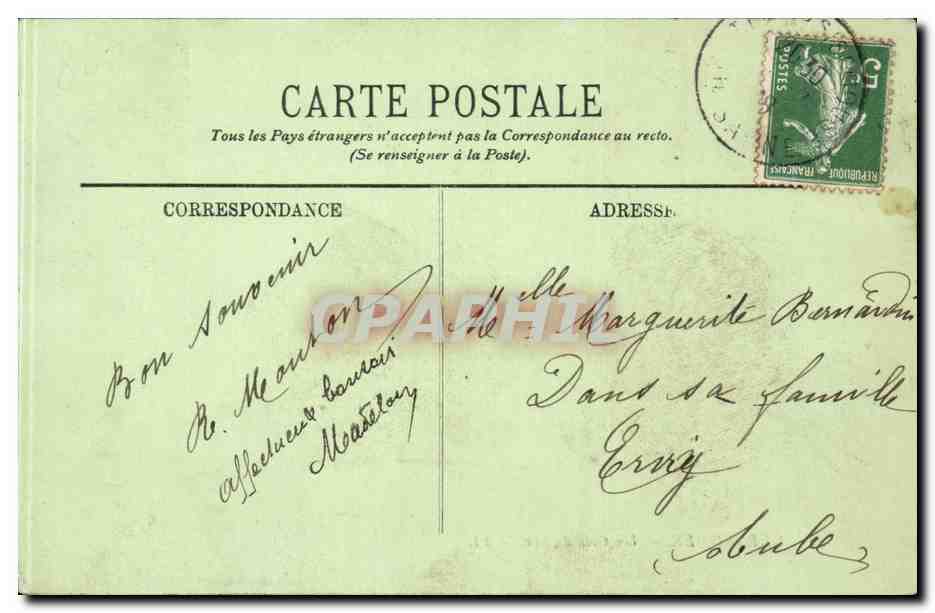 CARTE POSTALE
Tous les Pays étrangers n'acceptent pas la Correspondance au recto.
(Se renseigner à la Poste).
CORRESPONDANCE
ADRESSE
5c
POSTES
REPUBLIQUE FRANÇAISE
CPARHI
Bon souvenir
R. Mouton
Madelon
Melle Marguerite Bernardin
Dans sa famille
Ervy
Aube